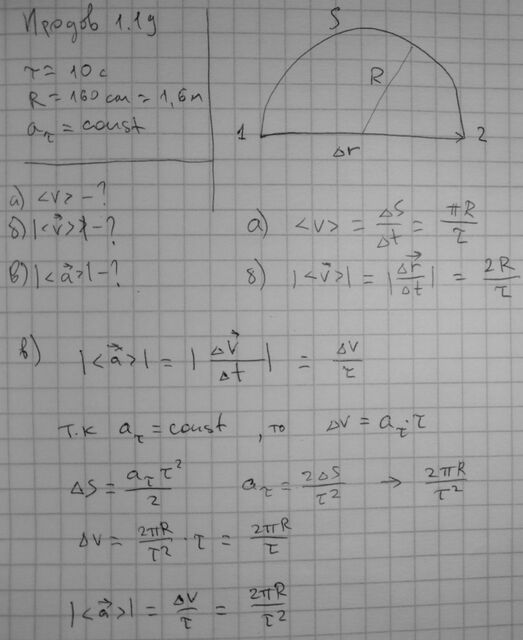 Иродов 1.19
τ = 10 c
R = 160 cm = 1,6 m
a_τ = const
S
R
1
2
Δr
а) <v> - ?
б) |<v⃗>| - ?
в) |<a⃗>| - ?
а) <v> = ΔS/Δt = πR/τ
б) |<v⃗>| = |Δr⃗/Δt| = 2R/τ
в) |<a⃗>| = |ΔV⃗/Δt| = ΔV/τ
т.к a_τ = const, то ΔV = a_τ·τ
ΔS = a_τ τ²/2 a_τ = 2ΔS/τ² → 2πR/τ²
ΔV = 2πR/τ² · τ = 2πR/τ
|<a⃗>| = ΔV/τ = 2πR/τ²